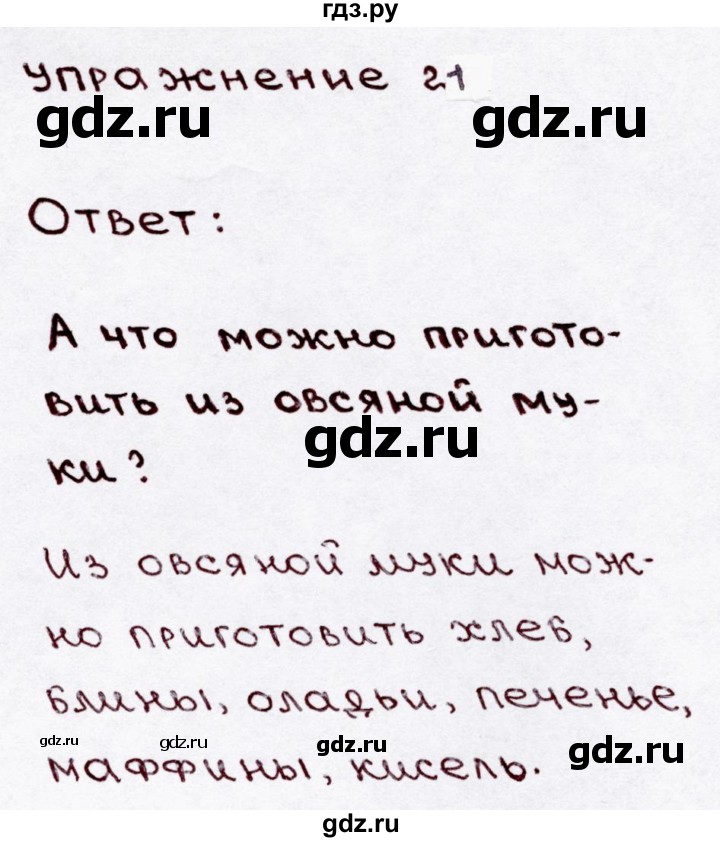 гдз.ру
Упражнение 21
gdz.ru gdz.ru
Ответ:
А что можно пригото-
вить из овсяной му-
gdz.ru
ки?
Из овсяной муки мож-
но приготовить хлеб,
блины, оладьи, печенье,
gdz.ru gdz.ru gdz.ru gdz.ru
маффины, кисель.
gdz.ru